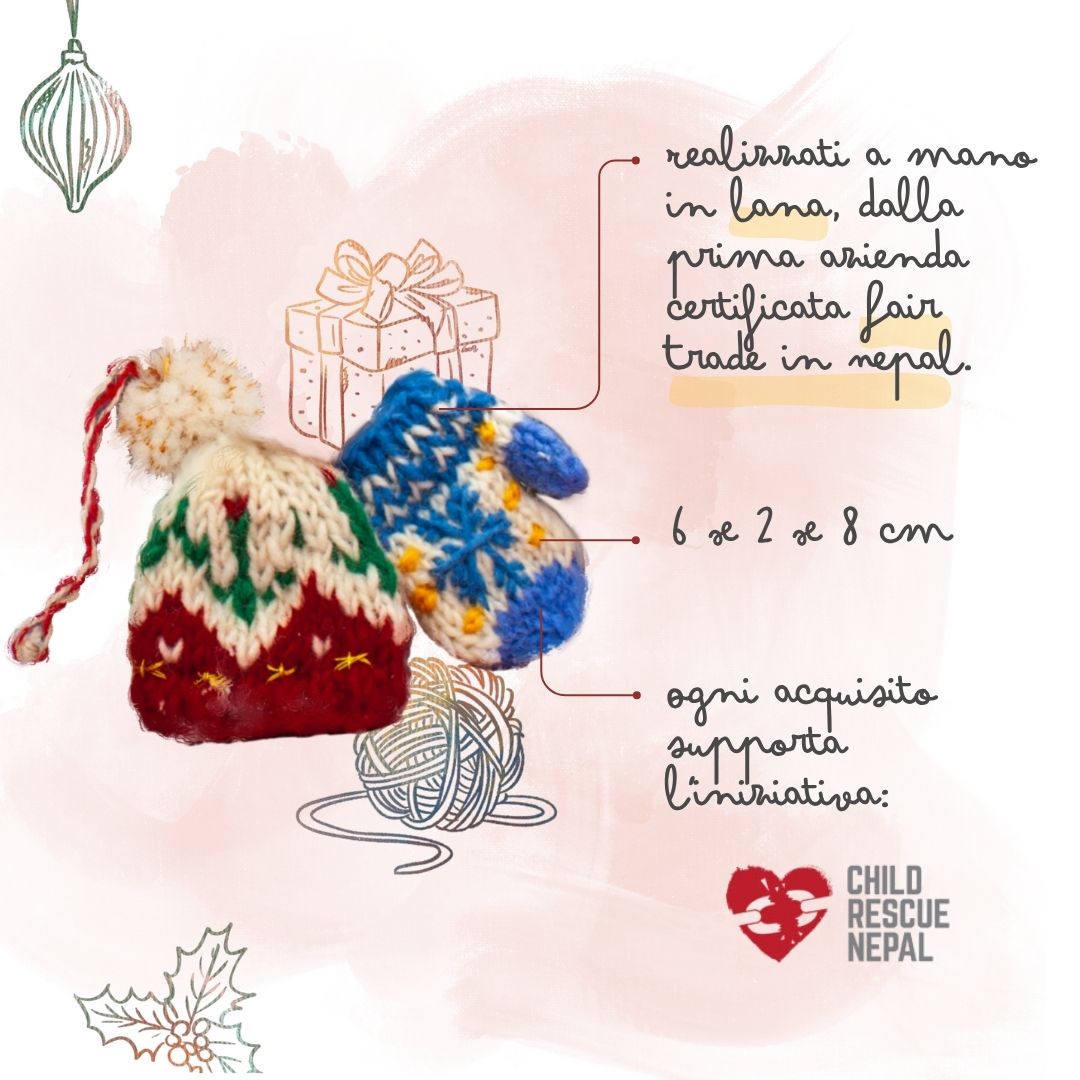 realizzati a mano
in lana, dalla
prima azienda
certificata fair
trade in nepal.
6 x 2 x 8 cm
ogni acquisito
supporta
l'iniziativa:
CHILD
RESCUE
NEPAL